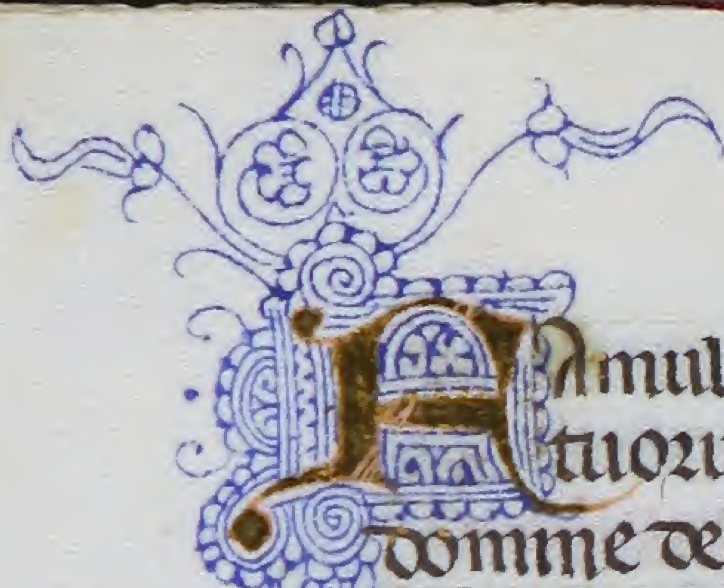 AAmul
tuoru
domine de